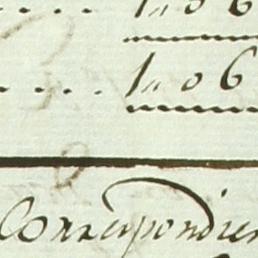 .... 1„ 0 6
.... 1„ 0 6
Correspondien